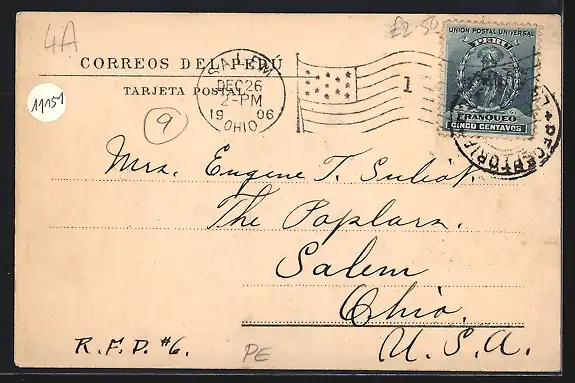 4A
£2.50
UNION POSTAL UNIVERSAL
PERU
FRANQUEO
CINCO CENTAVOS
CORREOS DEL PERÚ
TARJETA POSTAL
11751
9
SALEM
DEC 26
2-PM
19 06
OHIO
1
RECEPTORIA
Mrs. Eugene T. Suliot.
The Poplars.
Salem
Ohio.
R.F.D. #6.
U.S.A.
PE